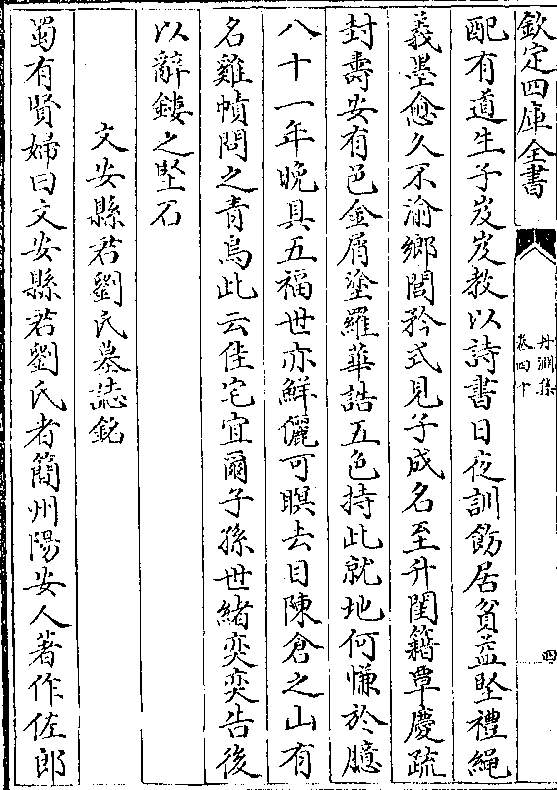 欽定四庫全書
丹淵集
卷四十
四
配有道生子岌岌教以詩書日夜訓飭居貧益堅禮繩
義墨愈久不渝鄉閭矜式見子成名至升閨籍覃慶疏
封壽安有邑金屑塗羅華誥五色持此就地何慊於臆
八十一年晚具五福世亦鮮儷可瞑去目陳倉之山有
名雞幘問之青烏此云佳宅宜爾子孫世緒奕奕告後
以辭鏤之堅石
文安縣君劉氏墓誌銘
蜀有賢婦曰文安縣君劉氏者簡州陽安人著作佐郎